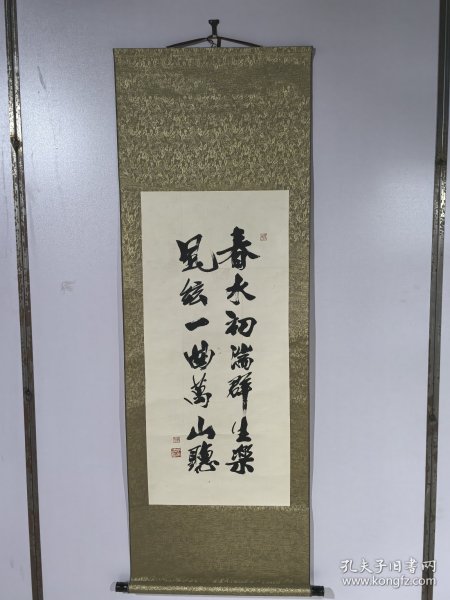 春水初群生樂
風絃一曲萬山聽
孔夫子旧书网
www.kongfz.com